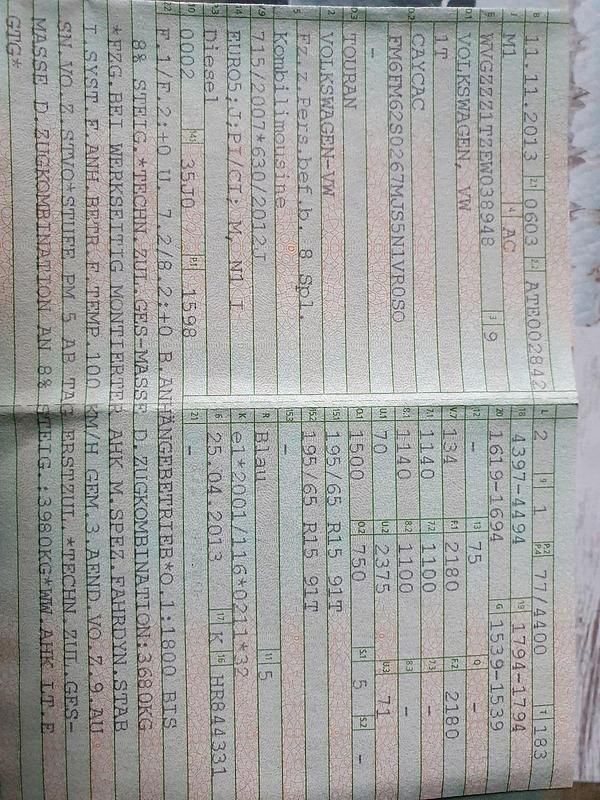 B 11.11.2013 2.1 0603 2.2 ATE002842
J M1 4 AC
E WVGZZZ1TZEW038948 3 9
D.1 VOLKSWAGEN, VW
1T
D.2 CAYCAC
FM6FM62S0267MJS5N1VR0SO
-
D.3 TOURAN
2 VOLKSWAGEN-VW
5 Fz.z.Pers.bef.b. 8 Spl.
Kombilimousine
V.9 715/2007*630/2012J
14 EURO5;J;PI/CI; M, N1 I
P.3 Diesel
10 0002 14.1 35J0 P.1 1598
L 2 9 1 P.2 P.4 77/4400 T 183
18 4397-4494 19 1794-1794
20 1619-1694 G 1539-1539
12 - 13 75 Q -
V.7 134 F.1 2180 F.2 2180
7.1 1140 7.2 1100 7.3 -
8.1 1140 8.2 1100 8.3 -
U.1 70 U.2 2375 U.3 71
O.1 1500 O.2 750 S.1 5 S.2 -
15.1 195/65 R15 91T
15.2 195/65 R15 91T
15.3 -
R Blau 11 5
K e1*2001/116*0211*32
6 25.04.2013 17 K 16 HR844331
21 -
22 F.1/F.2:+0 U. 7.2/8.2:+0 B.ANHÄNGEBETRIEB*O.1:1800 BIS
8% STEIG.*TECHN.ZUL.GES-MASSE D.ZUGKOMBINATION:3680KG
*FZG.BEI WERKSEITIG MONTIERTER AHK M.SPEZ.FAHRDYN.STAB
I.SYST.F.ANH.BETR.F.TEMP.100 KM/H GEM.3.AEND.VO.Z.9.AU
SN.VO.Z.STVO*STUFE PM 5 AB TAG ERSTZUL.*TECHN.ZUL.GES-
MASSE D.ZUGKOMBINATION AN 8% STEIG.:3980KG*WW.AHK LT.E
GTG*